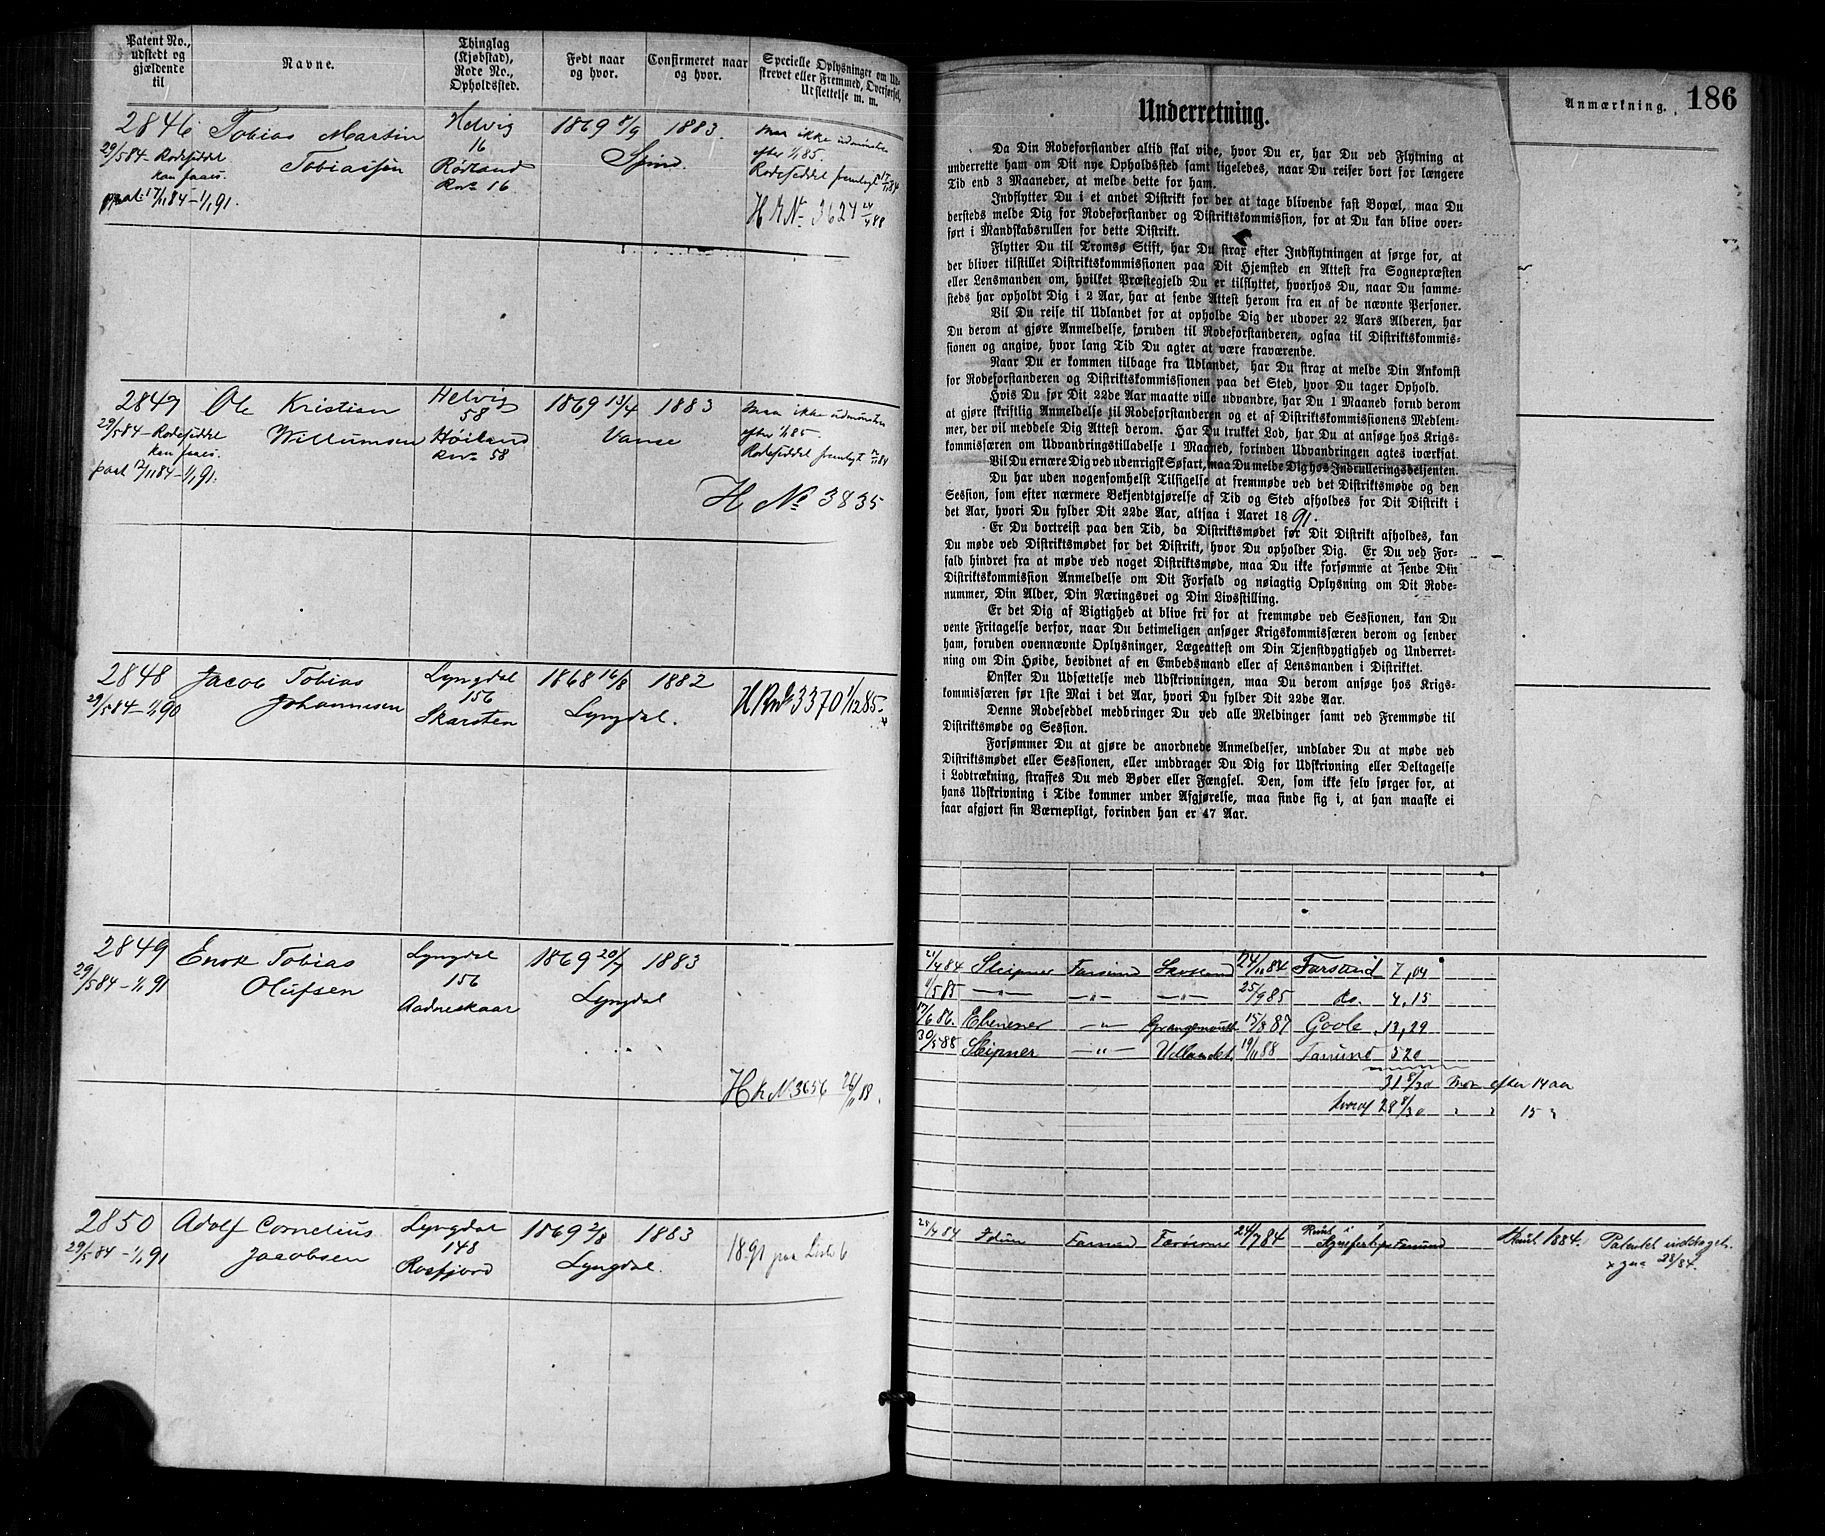 Patent No.,
udstedt og
gjældende
til
Navne.
Thinglag
(Kjøbstad),
Rode No.,
Opholdssted.
Født naar
og hvor.
Confirmeret naar
og hvor.
Specielle Oplysninger om Ud-
skrevet eller Fremmed, Overførsel,
Udslettelse m. m.
2846
29/5 84 - Rodeseddel
kan faaes.
pat. 17/11 84 - 1/1 91.
Tobias Martin
Tobiassen
Helvig
16
Rødland
Rno 16
1869 8/9
1883.
Spind.
maa ikke udmønstres
efter 1/1 85.
Rodeseddel fremlagt 17/11 84
H R No. 3624
2847
29/5 84 - Rodeseddel
kan faaes.
pat 17/11 84 - 1/1 91.
Ole Kristian
Willumsen
Helvig
58
Høiland
Rno 58
1869 13/4
1883
Vanse
maa ikke udmønstres
efter 1/1 85.
Rodeseddel fremlagt 84
H No 3835
2848
29/5 84 - 1/1 90
Jacob Tobias
Johannesen
Lyngdal
156
Skarsten
1868 16/8
1882
Lyngdal.
H R No 3370 1/12 85.
2849
29/5 84 - 1/1 91
Enok Tobias
Olufsen
Lyngdal
156
Aadneskaar
1869 20/7
1883
Lyngdal
H R No 3656 26/11 88.
2850
29/5 84 - 1/1 91
Adolf Cornelius
Jacobsen
Lyngdal
148
Rosfjord
1869 2/8
1883
Lyngdal.
1891 paa Liste 6
Anmærkning.
186
Underretning.
Da Din Rodeforstander altid skal vide, hvor Du er, har Du ved Flytning at
underrette ham om Dit nye Opholdssted samt ligeledes, naar Du reiser bort for længere
Tid end 3 Maaneder, at melde dette for ham.
Indflytter Du i et andet Distrikt for der at tage blivende fast Bopæl, maa Du
dersteds melde Dig for Rodeforstander og Distriktskommission, for at Du kan blive over-
ført i Mandskabsrullen for dette Distrikt.
Flytter Du til Tromsø Stift, har Du strax efter Indflytningen at sørge for, at
der bliver tilstillet Distriktskommissionen paa Dit Hjemsted en Attest fra Sognepræsten
eller Lensmanden om, hvilket Præstegjeld Du er tilflyttet, hvorhos Du, naar Du samme-
steds har opholdt Dig i 2 Aar, har at sende Attest herom fra en af de nævnte Personer.
Vil Du reise til Udlandet for at opholde Dig der udover 22 Aars Alderen, har
Du derom at gjøre Anmeldelse, foruden til Rodeforstanderen, ogsaa til Distriktskommis-
sionen og angive, hvor lang Tid Du agter at være fraværende.
Naar Du er kommen tilbage fra Udlandet, har Du strax at melde Din Ankomst
for Rodeforstanderen og Distriktskommissionen paa det Sted, hvor Du tager Ophold.
Hvis Du før Dit 22de Aar maatte ville udvandre, har Du 1 Maaned forud derom
at gjøre skriftlig Anmeldelse til Rodeforstanderen og et af Distriktskommissionens Medlem-
mer, der vil meddele Dig Attest derom. Har Du trukket Lod, har Du at ansøge hos Krigs-
kommissæren om Udvandringstilladelse 1 Maaned, forinden Udvandringen agtes iværksat.
Vil Du ernære Dig ved udenrigsk Søfart, maa Du melde Dig hos Indrulleringsbetjenten.
Du har uden nogensomhelst Tilsigelse at fremmøde ved det Distriktsmøde og den
Session, som efter nærmere Bekjendtgjørelse af Tid og Sted afholdes for Dit Distrikt i
det Aar, hvori Du fylder Dit 22de Aar, altsaa i Aaret 1891.
Er Du bortreist paa den Tid, da Distriktsmødet for Dit Distrikt afholdes, kan
Du møde ved Distriktsmødet for det Distrikt, hvor Du opholder Dig. Er Du ved For-
fald hindret fra at møde ved noget Distriktsmøde, maa Du ikke forsømme at sende Din
Distriktskommission Anmeldelse om Dit Forfald og nøiagtig Oplysning om Dit Rode-
nummer, Din Alder, Din Næringsvei og Din Livsstilling.
Er det Dig af Vigtighed at blive fri for at fremmøde ved Sessionen, kan Du
vente Fritagelse derfor, naar Du betimeligen ansøger Krigskommissæren derom og sender
ham, foruden ovennævnte Oplysninger, Lægeattest om Din Tjenstdygtighed og Underret-
ning om Din Høide, bevidnet af en Embedsmand eller af Lensmanden i Distriktet.
Ønsker Du Udsættelse med Udskrivningen, maa Du derom ansøge hos Krigs-
kommissæren før 1ste Mai i det Aar, hvori Du fylder Dit 22de Aar.
Denne Rodeseddel medbringer Du ved alle Meldinger samt ved Fremmøde til
Distriktsmøde og Session.
Forsømmer Du at gjøre de anordnede Anmeldelser, undlader Du at møde ved
Distriktsmødet eller Sessionen, eller unddrager Du Dig for Udskrivning eller Deltagelse
i Lodtrækning, straffes Du med Bøder eller Fængsel. Den, som ikke selv sørger for, at
hans Udskrivning i Tide kommer under Afgjørelse, maa finde sig i, at han maaske ei
faar afgjort sin Værnepligt, forinden han er 47 Aar.
21/4 84 Skipner Farsund 24/11 84 Farsund 7,04
1/5 85 —"— —"— —"— 25/9 85 Do. 4,15
17/6 86. Ebenener —"— Grangemouth 15/8 87 Goole 13,29
30/5 88 Skipner —"— Udlandet 19/11 88 Farsund 5 20
31 8/30 Mdr. efter 14 aar
hvoraf 28 8/30 " " 15 "
84 Farsund 24/7 84 Farsund
1884. Patentet inddraget.